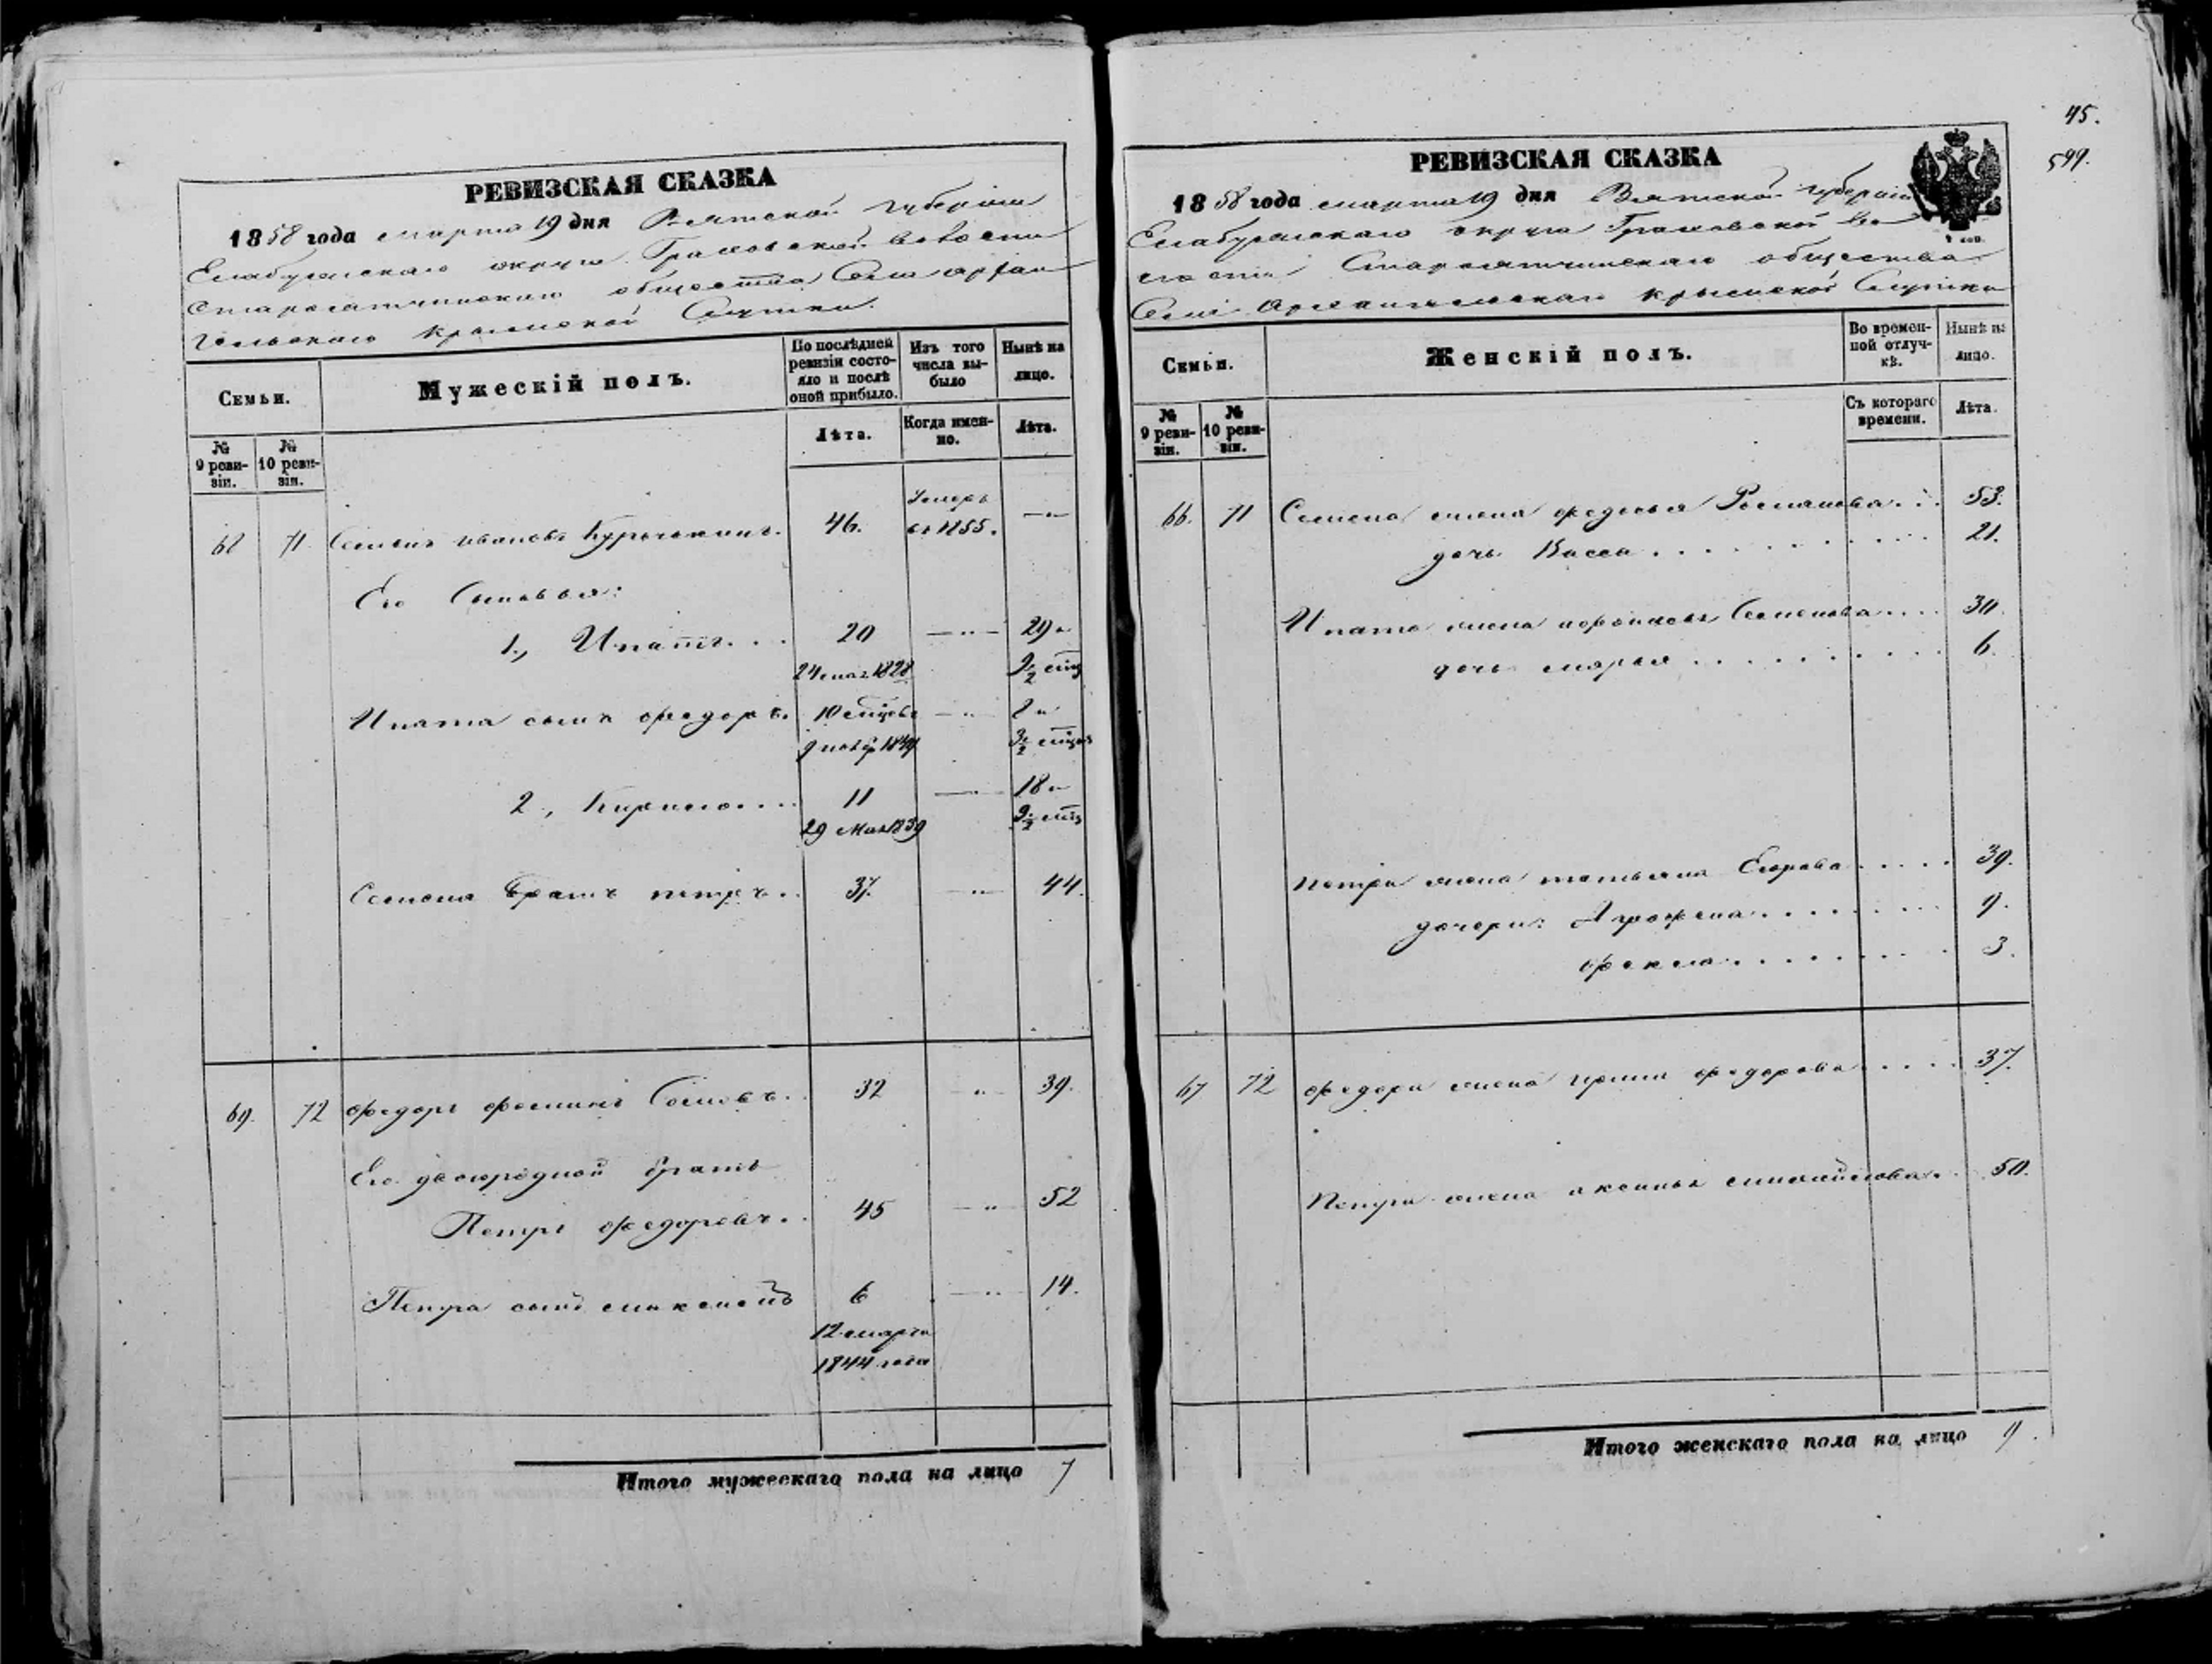 45.
599.
РЕВИЗСКАЯ СКАЗКА
1858 года марта 19 дня Вятской губерніи
Елабужскаго округа Граховской волости
Староятчинскаго общества Села Архан
гельскаго Крымской Слутки.
Семьи.
Мужескій полъ.
По послѣдней ревизіи состояло и послѣ оной прибыло.
Изъ того числа выбыло
Нынѣ на лицо.
№ 9 ревизіи.
№ 10 ревизіи.
Лѣта.
Когда именно.
Лѣта.
68 71. Семенъ Ивановъ 46. Умеръ въ 1855. — „ —
Его Сыновья:
1., Ипатъ... 20 — „ — 29 „
24 1828 9 1/2 мѣц
Ипата сынъ Федоръ. 10 мѣцовъ — „ — 8 „
3 1/2 мѣцов
2., Кирило.... 11 — „ — 18 „
29 Мая 1839 9 1/2 мѣц
Семена братъ Петръ.. 37. — „ — 44.
69. 72 Федоръ Фоминъ 32 — „ — 39.
Его двоюродной братъ
Петръ Федоровъ.. 45 — „ — 52
Петра сынъ 6 — „ — 14.
12 марта
1844 года
Итого мужескаго пола на лицо 7
РЕВИЗСКАЯ СКАЗКА
1858 года марта 19 дня Вятской губерніи
Елабужскаго округа Граховской во
лости Староятчинскаго общества
Села Архангельскаго Крымской Слутки
Семьи.
Женскій полъ.
Во временной отлучкѣ.
Нынѣ на лицо.
№ 9 ревизіи.
№ 10 ревизіи.
Съ котораго времени.
Лѣта.
66. 71 Семена жена Федосья ... 53.
дочь Васса........... 21.
Ипата жена Семенова.... 30.
дочь Марья.......... 6.
Петра жена Татьяна Егорова..... 39.
дочери: Агрофена........ 9.
Фекла........ 3.
67 72 Федора жена Ирина Федорова..... 37.
Петра жена Аксинья Михайлова.. 50.
Итого женскаго пола на лицо 9.